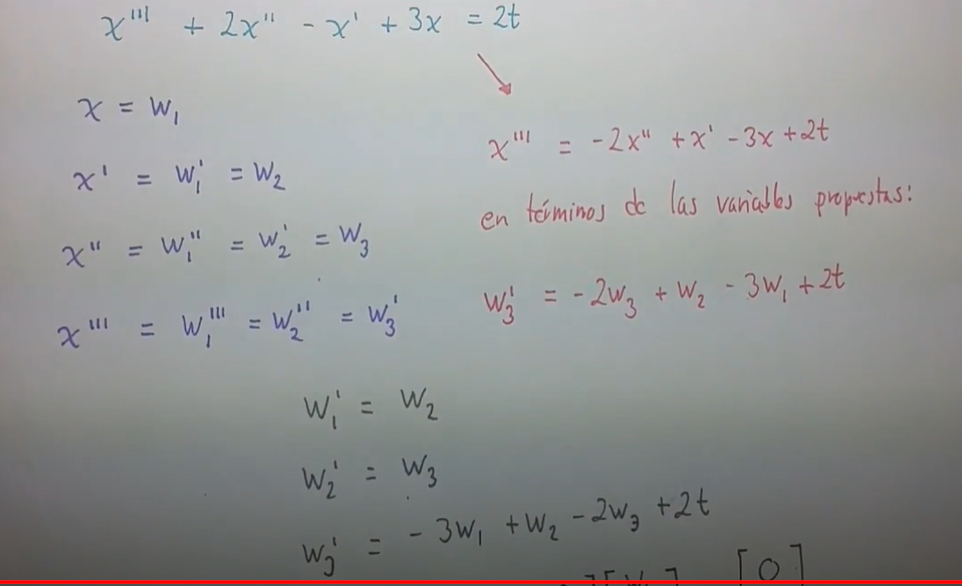 x''' + 2x'' - x' + 3x = 2t
x = w₁
x' = w₁' = w₂
x'' = w₁'' = w₂' = w₃
x''' = w₁''' = w₂'' = w₃'
x''' = -2x'' + x' - 3x + 2t
en términos de las variables propuestas:
w₃' = -2w₃ + w₂ - 3w₁ + 2t
w₁' = w₂
w₂' = w₃
w₃' = - 3w₁ + w₂ - 2w₃ + 2t